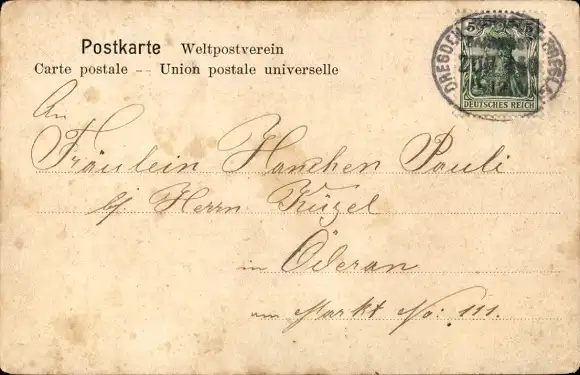 Postkarte Weltpostverein
Carte postale -- Union postale universelle
5 5
DEUTSCHES REICH
DRESDEN
An
Fräulein Hanchen Pauli
bei Herrn Küzel
in Öderan
am Markt No: 111.